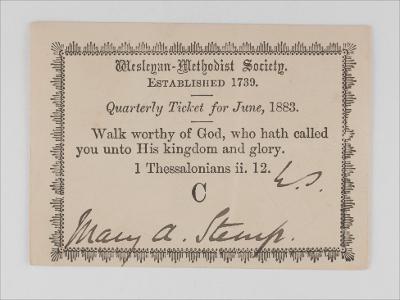 Wesleyan-Methodist Society.
ESTABLISHED 1739.
Quarterly Ticket for June, 1883.
Walk worthy of God, who hath called
you unto His kingdom and glory.
1 Thessalonians ii. 12.
C
Mary A. Stemp.